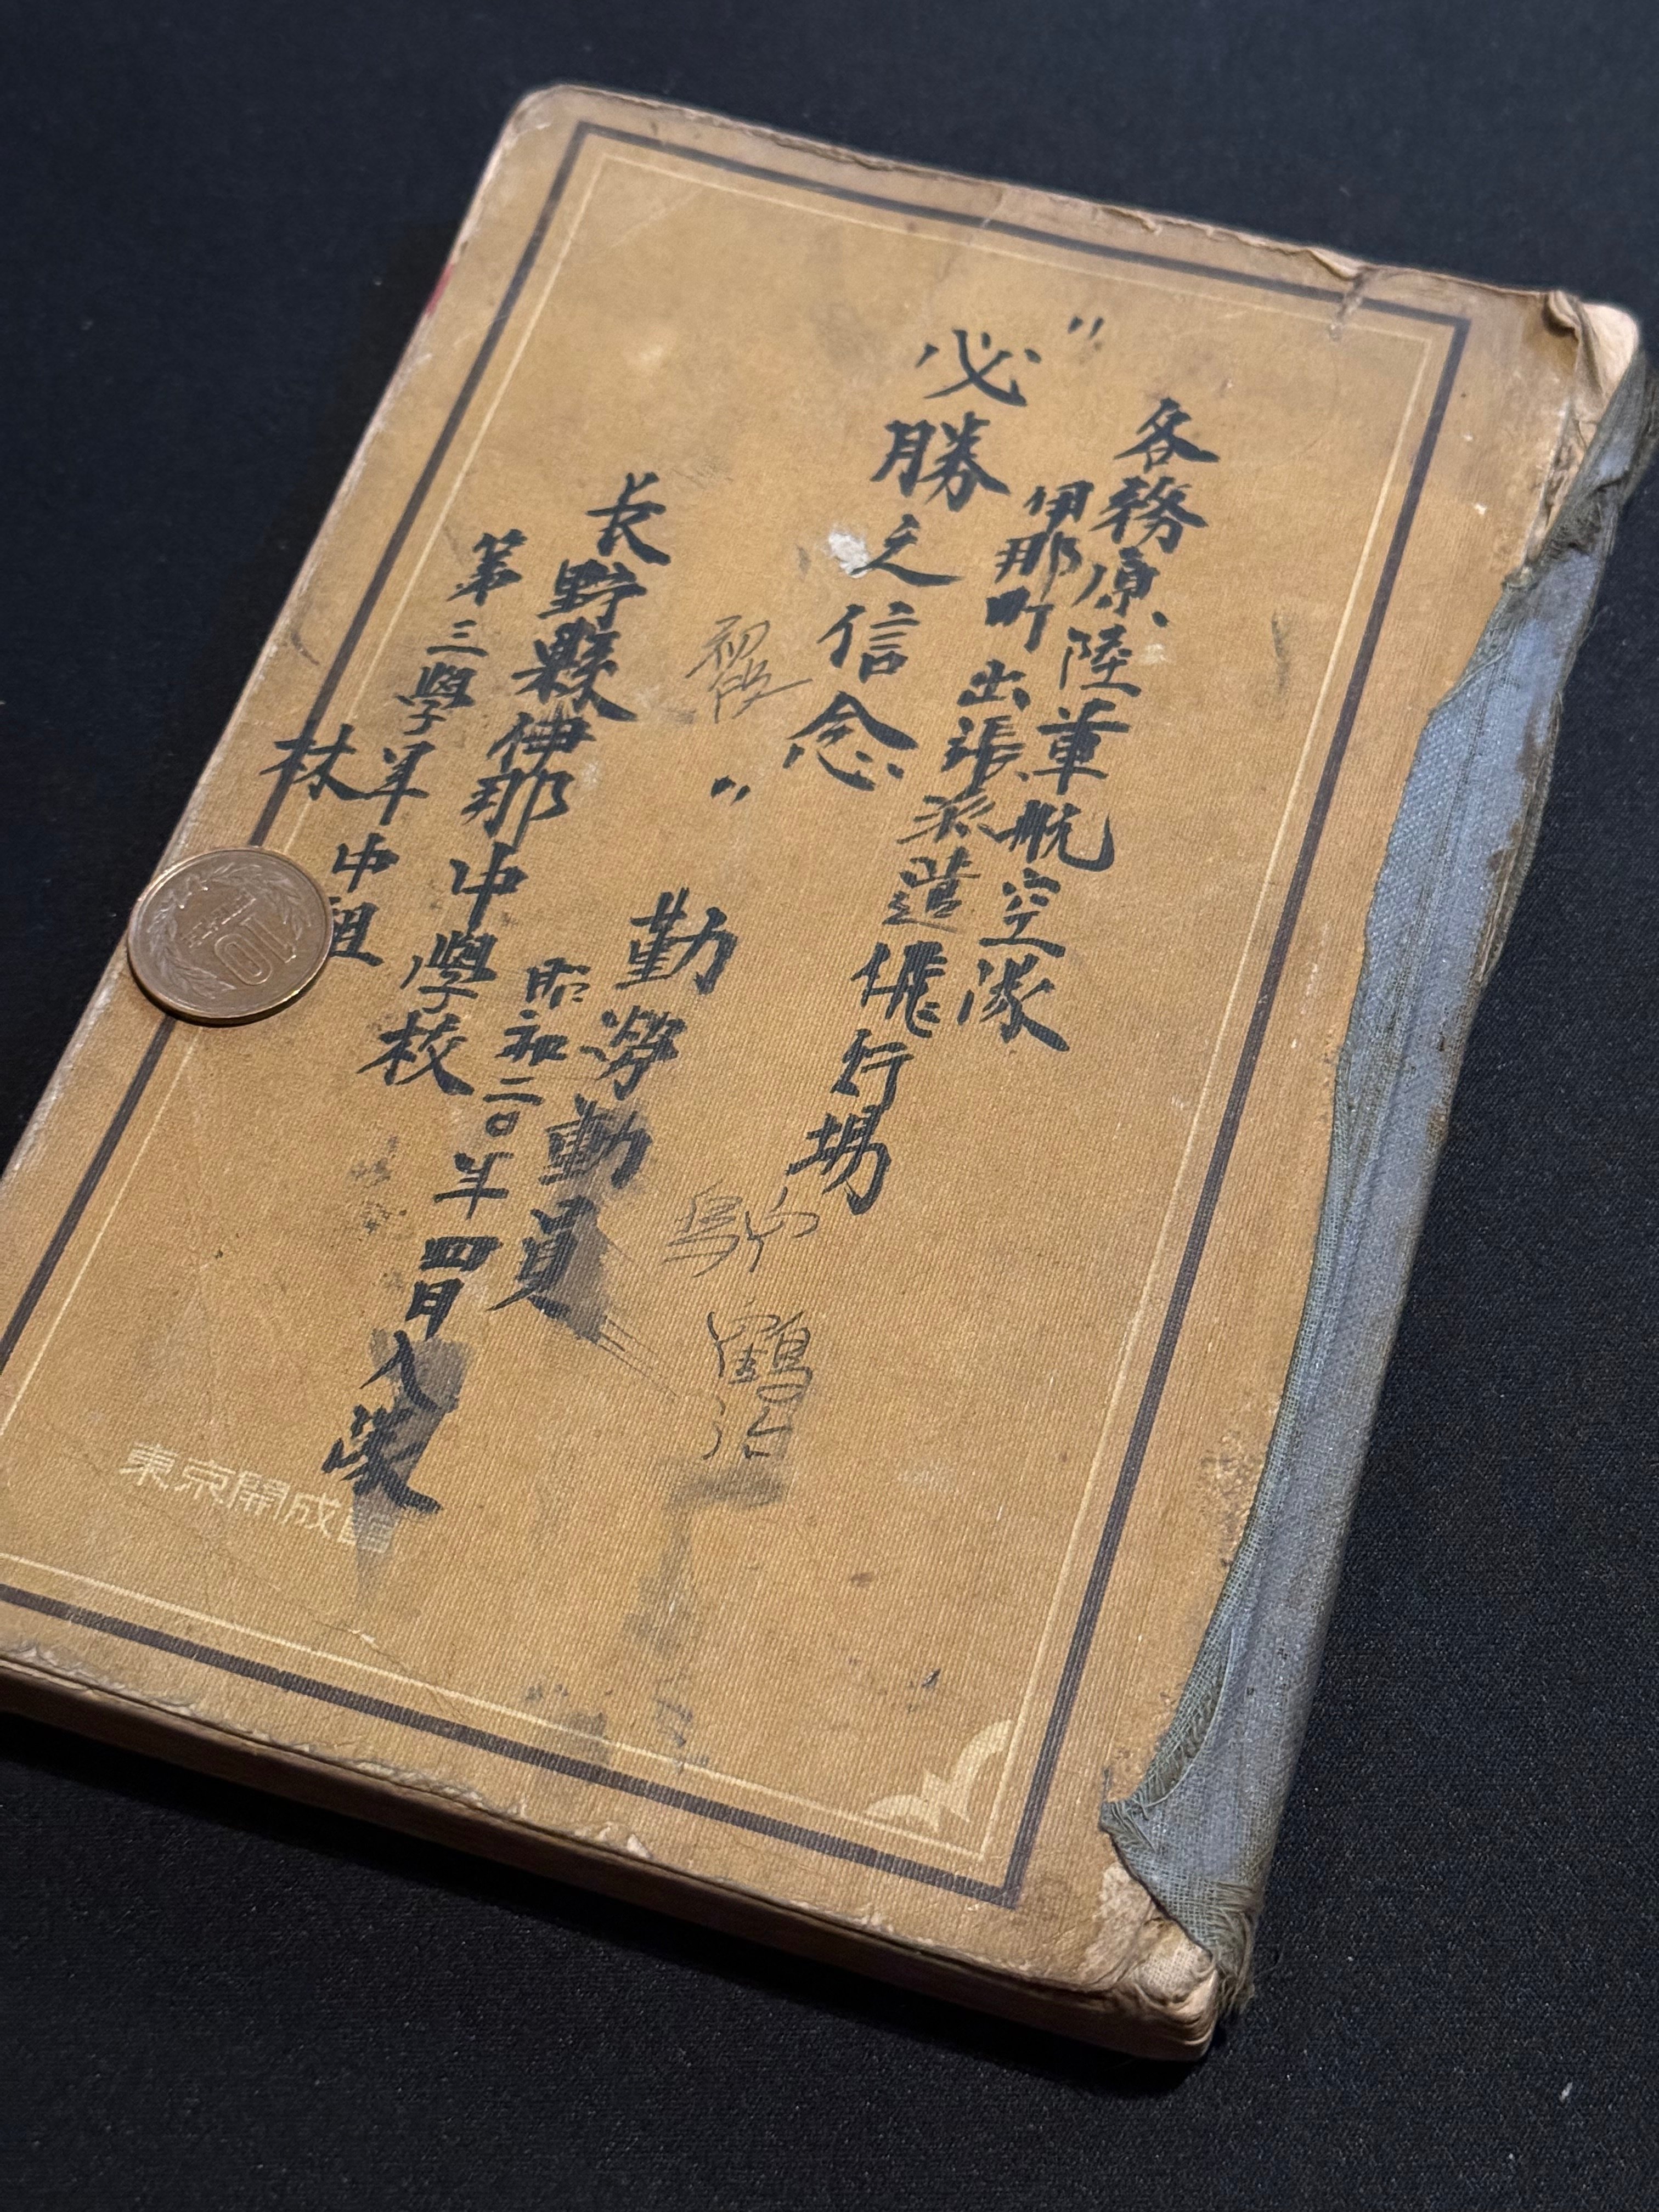 各務原陸軍航空隊
伊那町出張派遣飛行場
"必勝之信念"
勤勞動員
昭和二〇年四月入營
長野縣伊那中學校
第三學年中組
林
鶴治
東京開成館
10